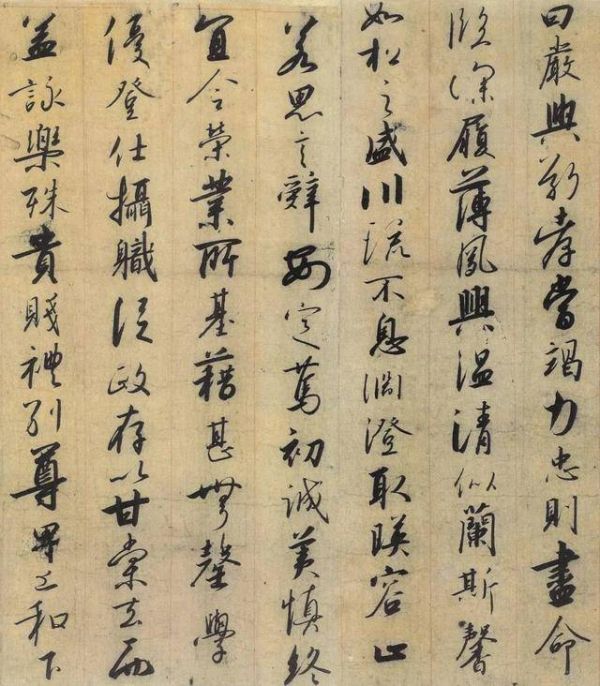 曰嚴與敬孝當竭力忠則盡命
臨深履薄夙興温清似蘭斯馨
如松之盛川流不息淵澄取暎容止
若思言辭安定篤初誠美慎終
宜令榮業所基藉甚無罄學
優登仕攝職從政存以甘棠去而
益詠樂殊貴賤禮別尊卑上和下